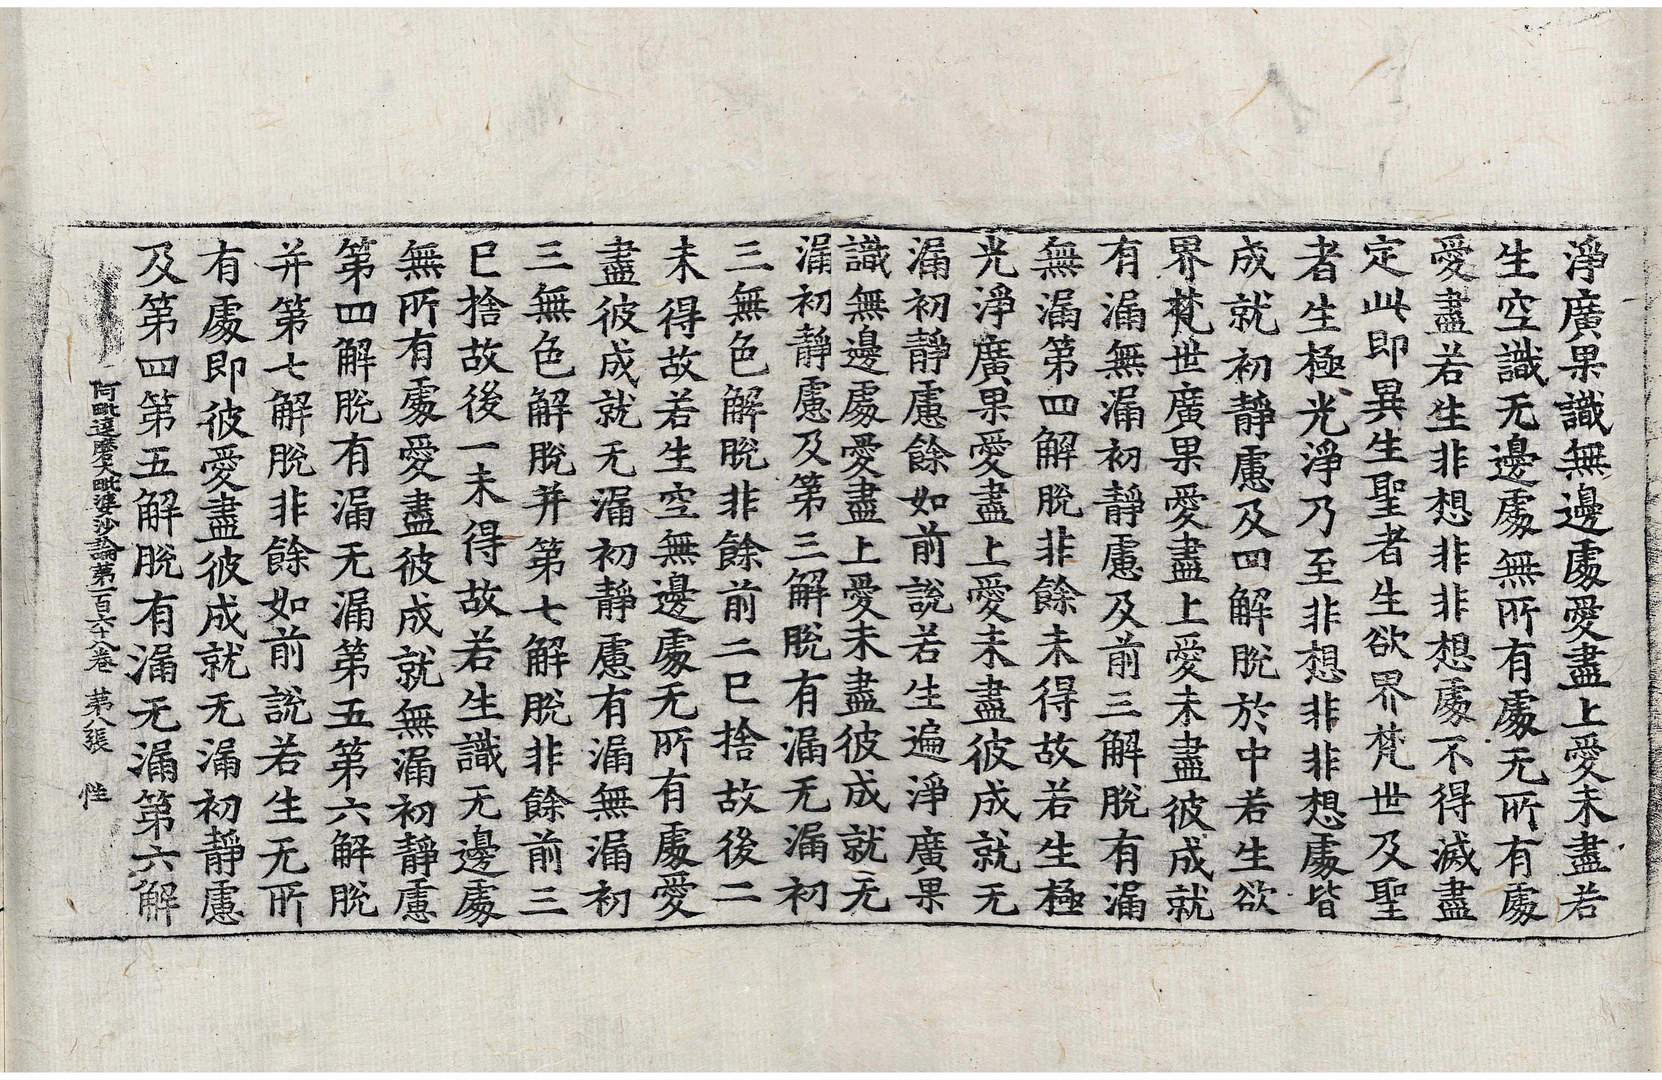 淨廣果識無邊處愛盡上愛未盡若
生空識无邊處無所有處无所有處
愛盡若生非想非非想處不得滅盡
定此即異生聖者生欲界梵世及聖
者生極光淨乃至非想非非想處皆
成就初靜慮及四解脫於中若生欲
界梵世廣果愛盡上愛未盡彼成就
有漏無漏初靜慮及前三解脫有漏
無漏第四解脫非餘未得故若生極
光淨廣果愛盡上愛未盡彼成就无
漏初靜慮餘如前說若生遍淨廣果
識無邊處愛盡上愛未盡彼成就无
漏初靜慮及第三解脫有漏无漏初
三無色解脫非餘前二已捨故後二
未得故若生空無邊處无所有處愛
盡彼成就无漏初靜慮有漏無漏初
三無色解脫并第七解脫非餘前三
已捨故後一未得故若生識无邊處
無所有處愛盡彼成就無漏初靜慮
第四解脫有漏无漏第五第六解脫
并第七解脫非餘如前說若生无所
有處即彼愛盡彼成就无漏初靜慮
及第四第五解脫有漏无漏第六解
阿毗達磨大毗婆沙論第一百六十八卷 第八張 性